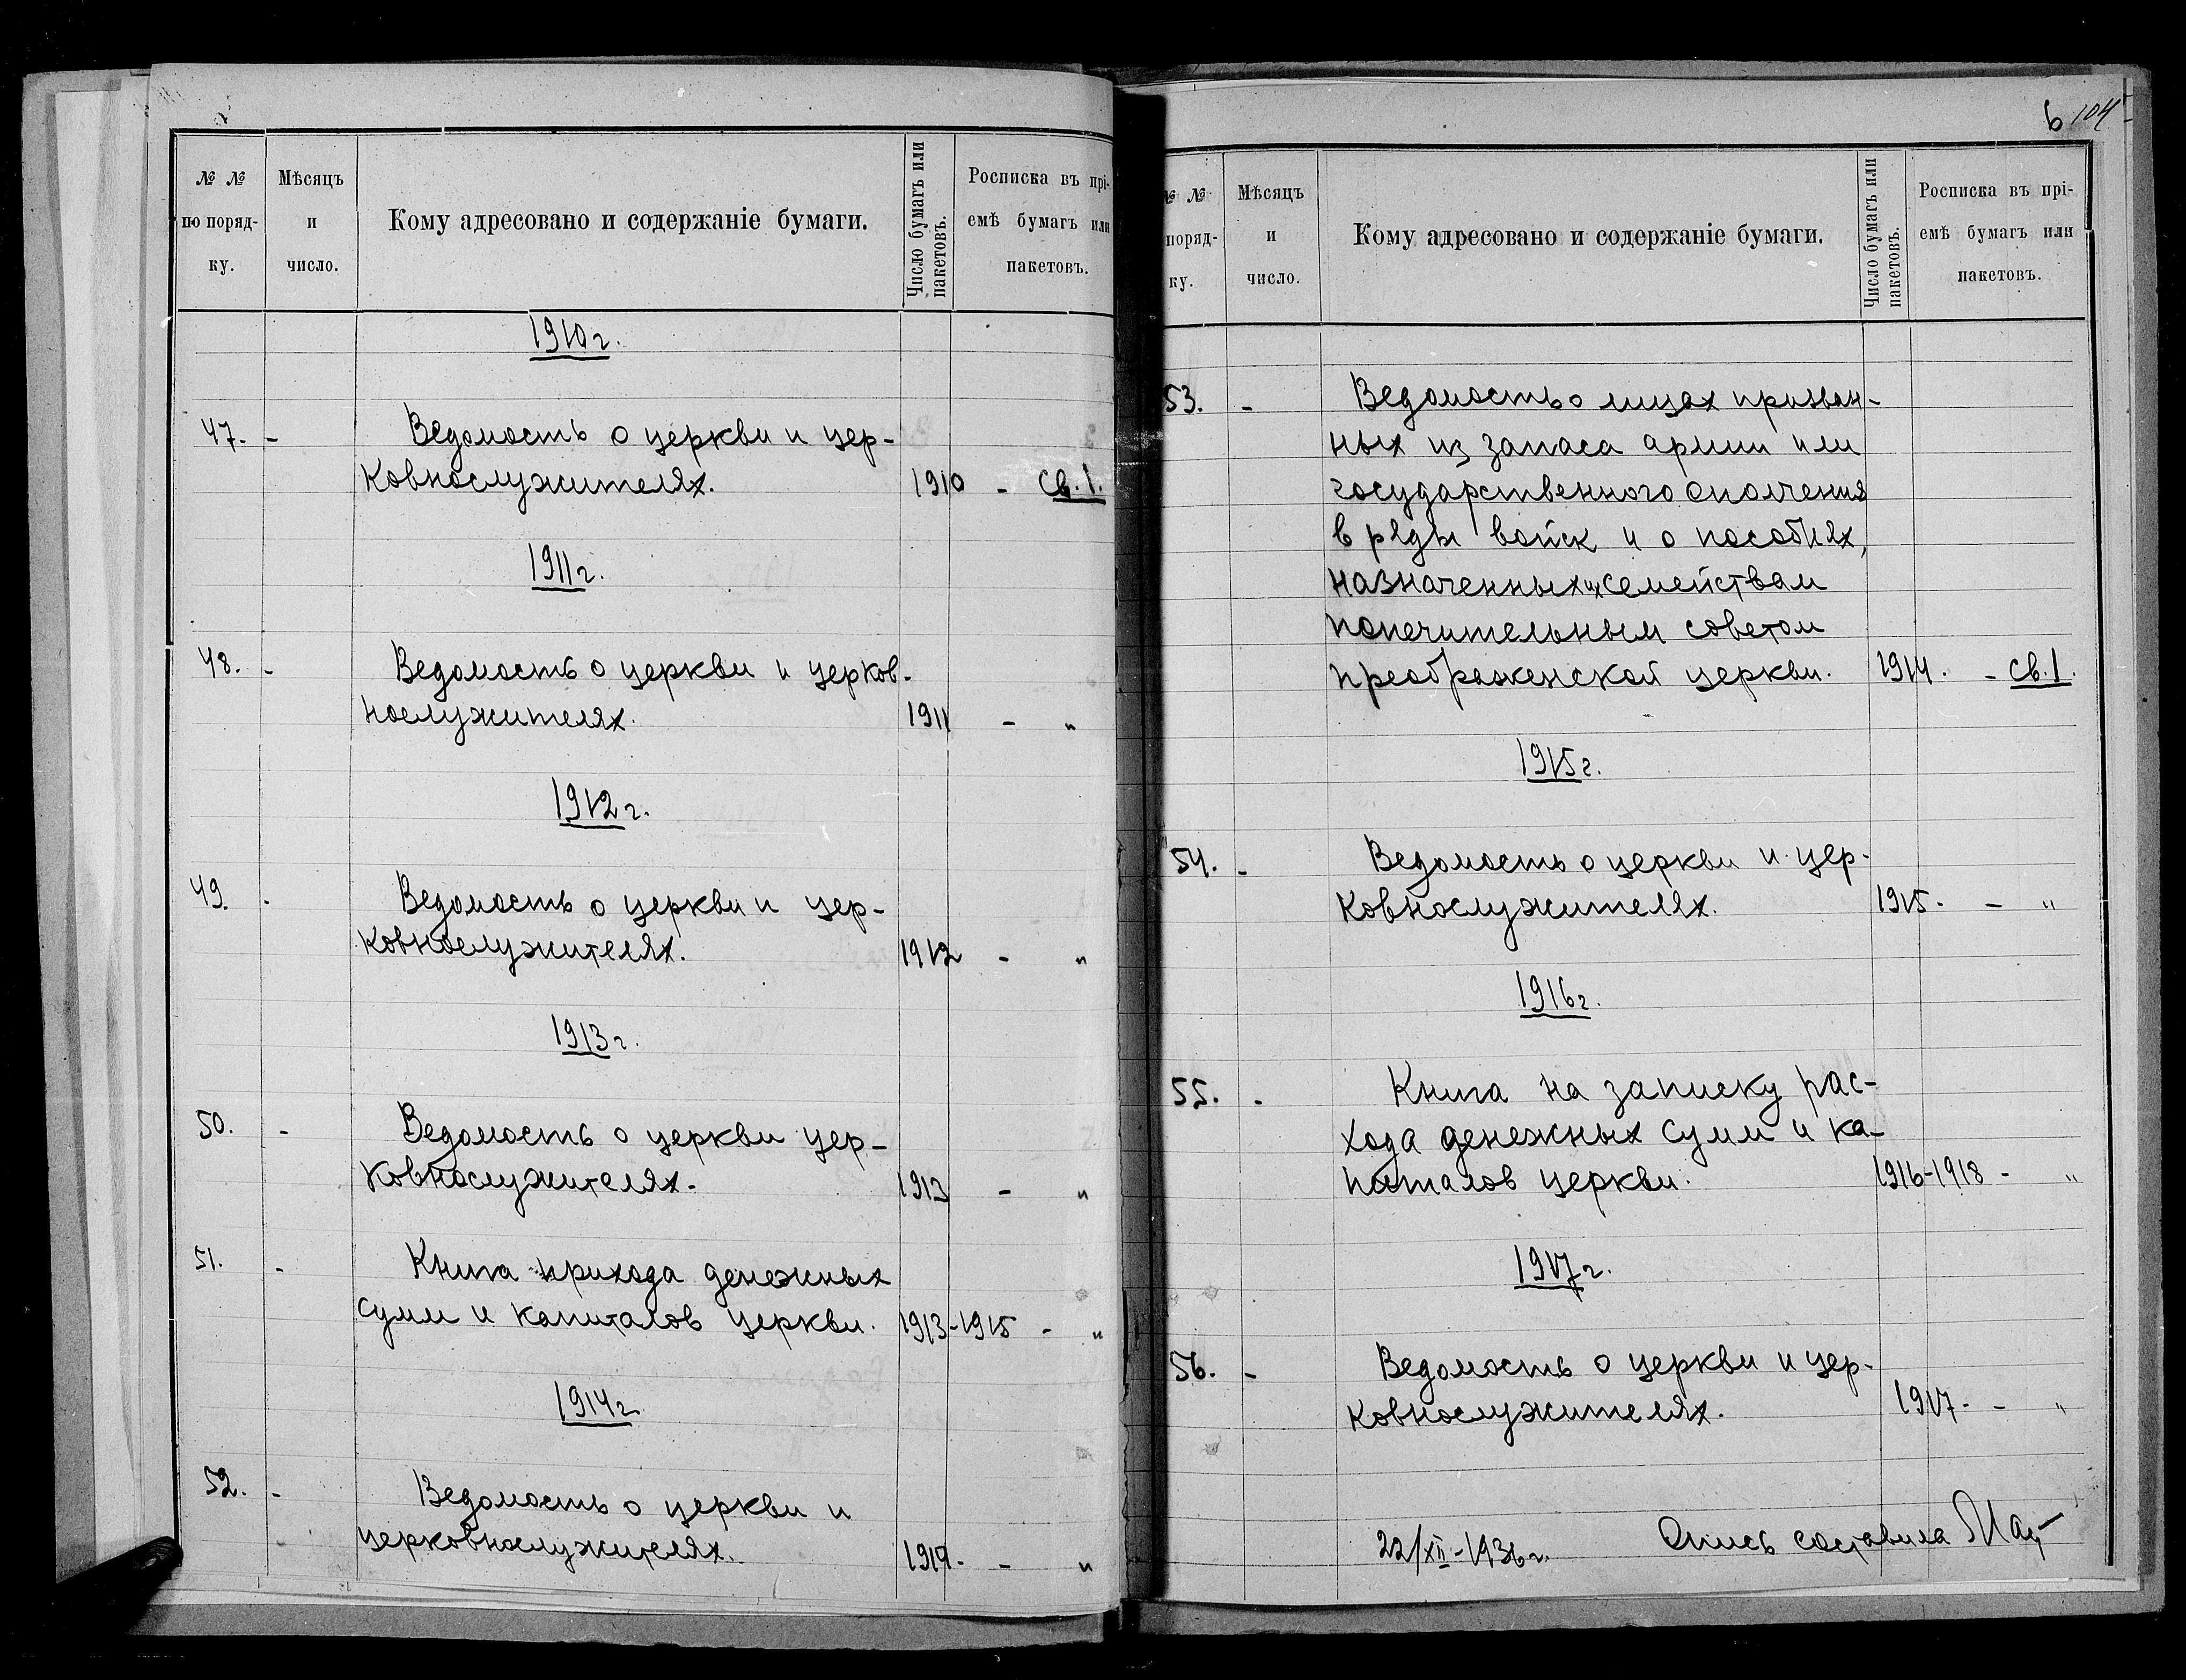 № № Мѣсяцъ Кому адресовано и содержаніе бумаги. Число бумагъ или Росписка въ прі-
по поряд- и пакетовъ. емѣ бумагъ или
ку. число. пакетовъ.
1910 г.
47. - Ведомость о церкви и цер-
ковнослужителях. 1910 - Св. 1.
1911 г.
48. - Ведомость о церкви и церков-
нослужителях. 1911 - "
1912 г.
49. - Ведомость о церкви и цер-
ковнослужителях. 1912 - "
1913 г.
50. - Ведомость о церкви цер-
ковнослужителях. 1913 - "
51. - Книга прихода денежных
сумм и капиталов церкви. 1913-1915 - "
1914 г.
52. - Ведомость о церкви и
церковнослужителях. 1914 - - "
6 104
№ № Мѣсяцъ Кому адресовано и содержаніе бумаги. Число бумагъ или Росписка въ прі-
поряд- и пакетовъ. емѣ бумагъ или
ку. число. пакетовъ.
53. - Ведомость о лицах призван-
ных из запаса армии или
государственного ополчения
в ряды войск и о пособиях,
назначенных их семействам
попечительным советом
преображенской церкви. 1914. - Св. 1.
1915 г.
54. - Ведомость о церкви и цер-
ковнослужителях. 1915 - - "
1916 г.
55. - Книга на записку рас-
хода денежных сумм и ка-
питалов церкви. 1916-1918 - "
1917 г.
56. - Ведомость о церкви и цер-
ковнослужителях. 1917 - - "
22/XII-1936 г. Опись составила